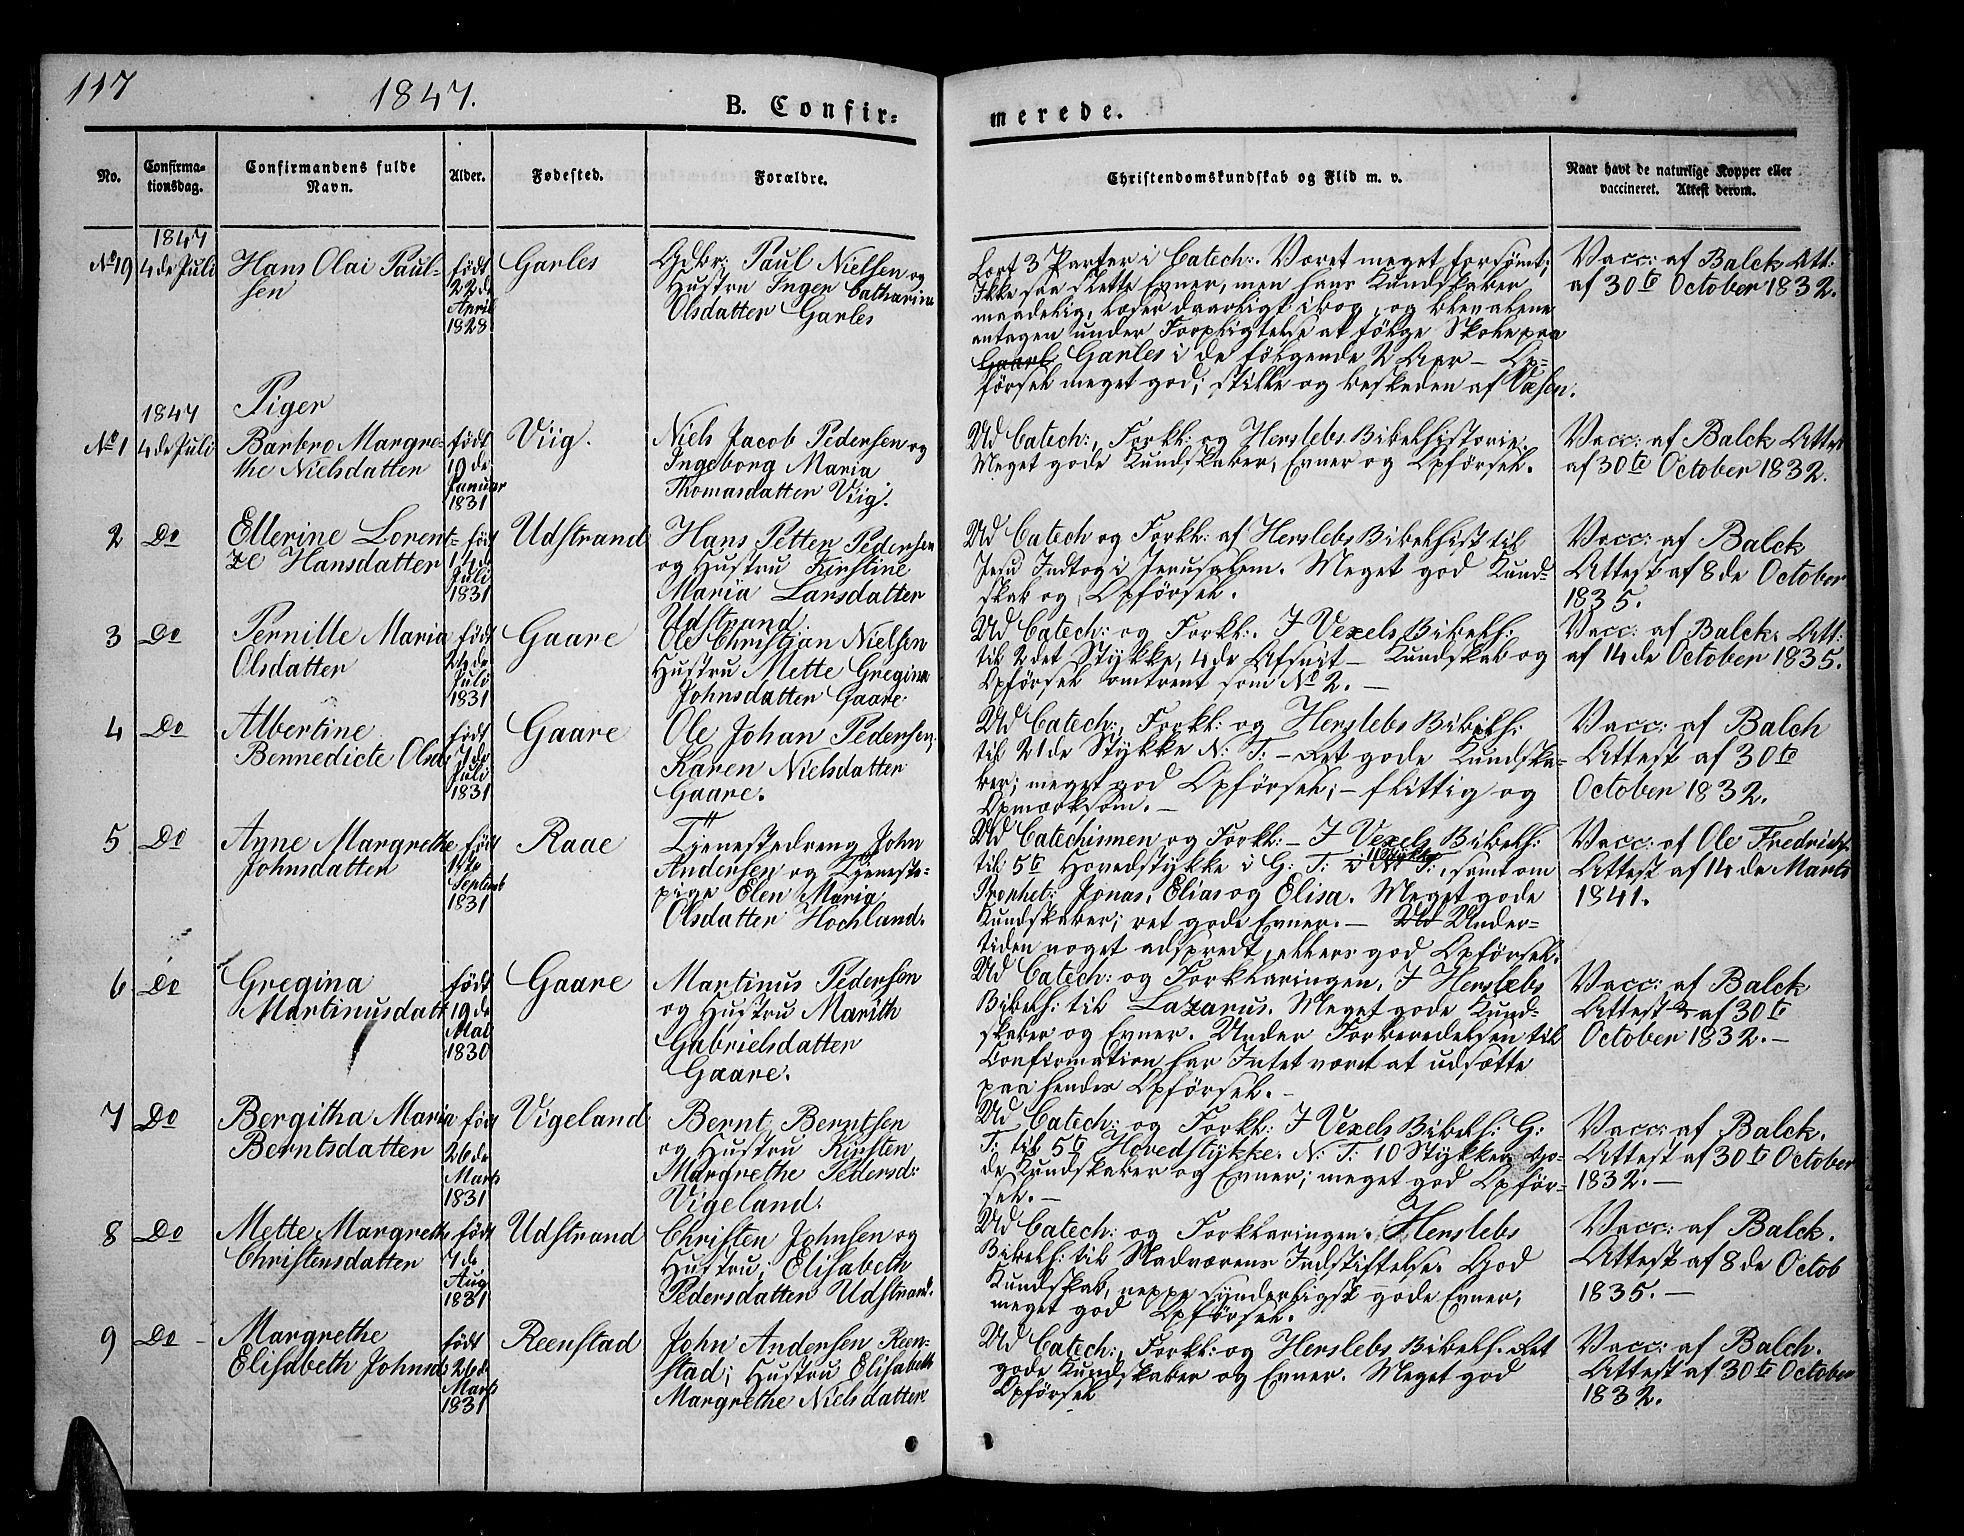 117
1847.
B. Confir-
merede.
No.
Confirma-
tionsdag.
Confirmandens fulde
Navn.
Alder.
Fødested.
Forældre.
Christendomskundskab og Flid m. v.
Naar havt de naturlige Kopper eller
vaccineret. Attest derom.
1847
No 19
4de Juli
Hans Olai Paul-
sen
født
22de
April
1828
Garles
Gdbr: Paul Nielsen og
Hustru Inger Catharina
Olsdatter Garles
Lært 3 Parter i Catech:. Været meget forsømt;
Ikke saa slette Evner, men hans Kundskaber
maadelig, læser daarligt i bog, og blev alene
antagen under Forpligtelse at følge Skole paa
Gaarl Garles i de følgende 2 Aar – Op-
førsel meget god; stille og beskeden af Væsen.
Vacc: af Balck Att:
af 30te October 1832.
Piger
1847
No 1
4de Juli
Barbro Margre-
the Nielsdatter
født
19de
Januar
1831
Viig.
Niels Jacob Pedersen og
Ingeborg Maria
Thomasdatter Viig.
Ud Catech:, Forkl: og Herslebs Bibelhistorie:
Meget gode Kundskaber, Evner og Opførsel.
Vacc: af Balck Attest
af 30te October 1832.
2
Do
Ellerine Lorent-
ze Hansdatter
født
Juli
1831
Udstrand
Hans Petter Pedersen
og Hustru Kirstine
Maria Larsdatter
Udstrand.
Ud Catech og Forkl: af Herslebs Bibelhist til
Jesu Indtog i Jerusalem. Meget god Kund-
skab og Opførsel.
Vacc: af Balck
Attest af 8de October
1835.
3
Do
Pernille Maria
Olsdatter
født
24de
Juli
1831
Gaare
Ole Christian Nielsen
Hustru Mette Gregina
Johnsdatter Gaare
Ud Catech: og Forkl:. I Vexels Bibelh:
til 2det Stykke, 4de Afsnit – Kundskab og
Opførsel omtrent som No 2. –
Vacc: af Balck. Att:
af 14de October 1835.
4
Do
Albertine
Bennedicte Olsd
født
7de
Juli
1831
Gaare
Ole Johan Pedersen,
Karen Nielsdatter
Gaare.
Ud Catech:, Forkl: og Herslebs Bibelh:
til 21de Stykke N: T: – Ret gode Kundska-
ber; meget god Opførsel; – flittig og
Opmærksom. –
Vacc: af Balch
Attest af 30te
October 1832.
5
Do
Anne Margrethe
Johnsdatter
født
Septemb
1831
Raae
Tjenestedreng John
Andersen og Tjeneste-
pige Elen Maria
Olsdatter Hochland.
Ud Catechismen og Forkl: – I Vexels Bibelh:
til 5te Hovedstykke i G: T: samt om
Prophet: Jonas, Elias og Elisa. Meget gode
Kundskaber; ret gode Evner. – Ud Under-
tiden noget adspredt, ellers god Opførsel.
Vacc: af Ole Fredrichs.
Attest af 14de Marts
1841.
6
Do
Gregina
Martinusdatt
født
19de
Mai
1830
Gaare
Martinus Pedersen
og Hustru Marith
Gabrielsdatter
Gaare.
Ud Catech: og Forklaringen, I Herslebs
Bibelh: til Lazarus. Meget gode Kund-
skaber og Evner. Under Forberedelsen til
Confirmation har Intet været at udsætte
paa hendes Opførsel. –
Vacc: af Balck
Attest af 30te
October 1832. –
7
Do
Bergitha Maria
Berntsdatter
født
26de
Marts
1831
Vigeland
Bernt Berntsen
og Hustru Kirsten
Margrethe Pedersd:
Vigeland.
Ud Catech: og Forkl: I Vexels Bibelh: G:
T: til 5te Hovedstykke. N: T: 10 Stykker. Go-
de Kundskaber og Evner; meget god Opfør-
sel. –
Vacc: af Balck.
Attest af 30te October
1832. –
8
Do
Mette Margrethe
Christensdatter
født
7de
Aug
1831
Udstrand
Christen Johnsen og
Hustru; Elisabeth
Pedersdatter Udstrand.
Ud Catech: og Forklaringen. Herslebs
Bibelh: til Nadverens Indstiftelse. God
Kundskab, neppe synderligst gode Evner;
meget god Opførsel.
Vacc: af Balck.
Attest af 8de Octob
1835. –
9
Do –
Margrethe
Elisabeth Johnsd
født
26de
Marts
1831
Reenstad
John Andersen Reen-
stad; Hustru Elisabeth
Margrethe Nielsdatter
Ud Catech:, Forkl: og Herslebs Bibelh. Ret
gode Kundskaber og Evner. Meget god
Opførsel
Vacc: af Balch.
Attest af 30te October
1832.